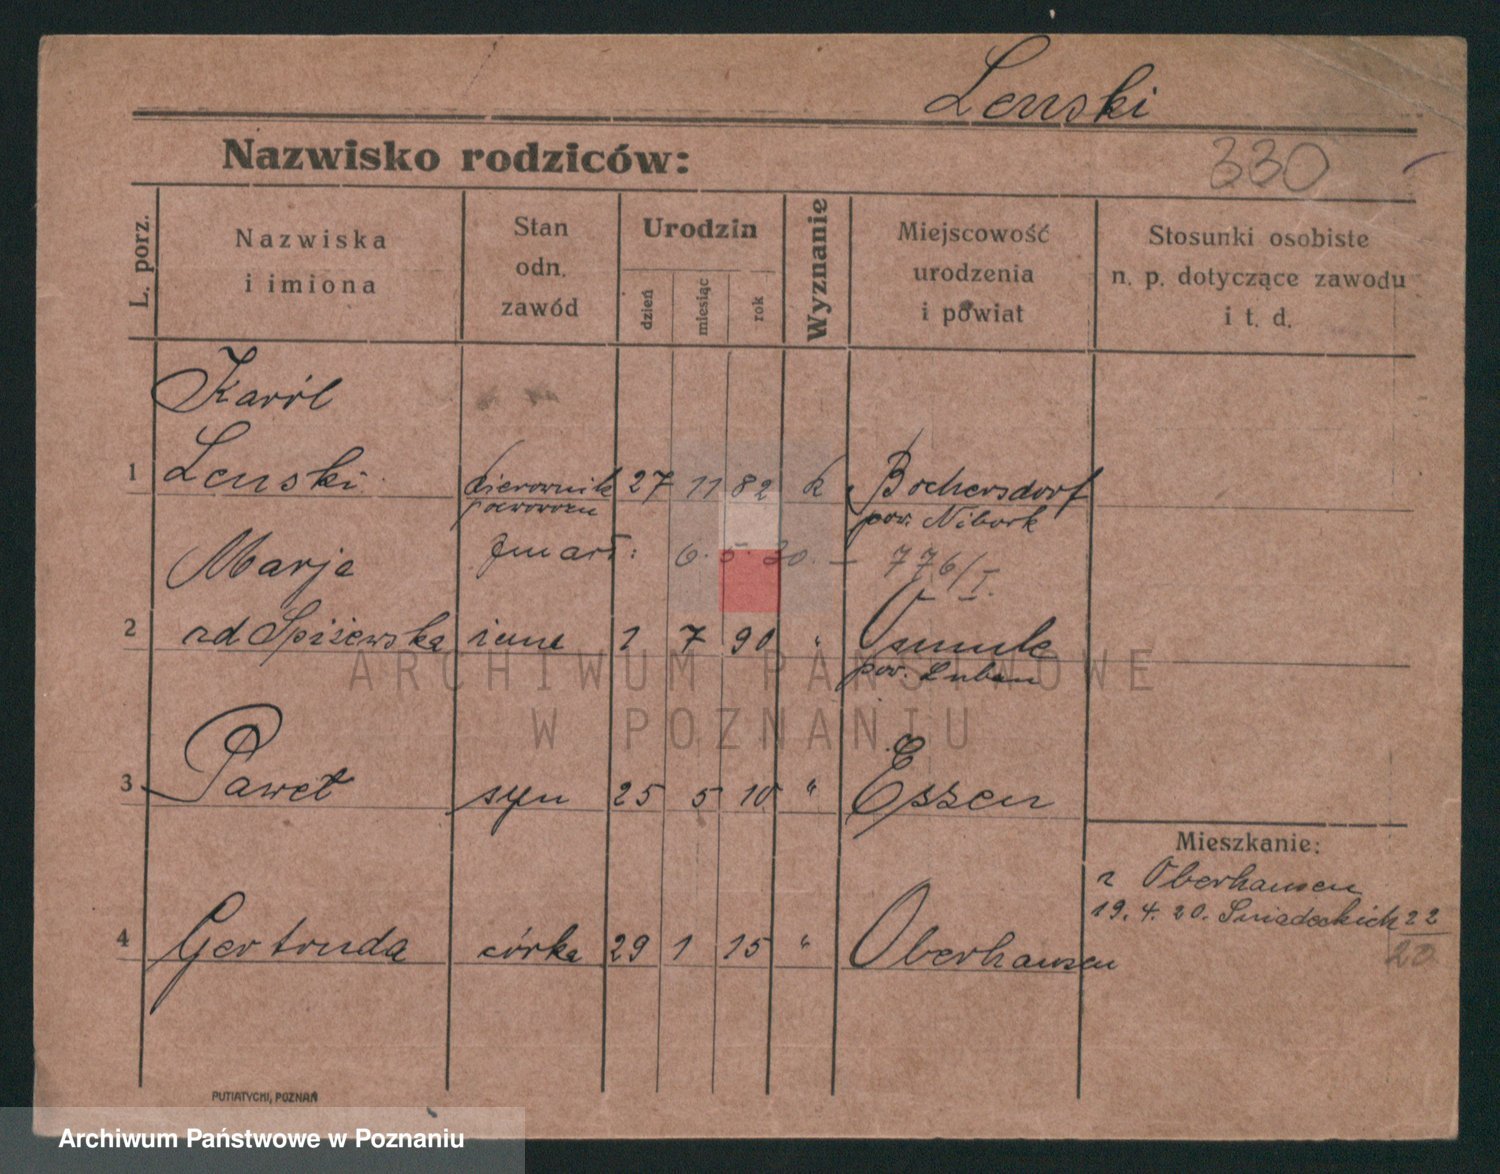 Lenski
Nazwisko rodziców:
330
L. porz.
Nazwiska
i imiona
Stan
odn.
zawód
Urodzin
dzień
miesiąc
rok
Wyznanie
Miejscowość
urodzenia
i powiat
Stosunki osobiste
n. p. dotyczące zawodu
i t. d.
Karól
1 Lenski kierownik 27 11 82 k Bochersdorf
pow. Nibork
Marja zmarł: 6. 5. 30. — 776/I.
2 zd Spiżewska żona 1 7 90 "
pow. Lubau
3 Paweł syn 25 5 10 " Essen
Mieszkanie:
z Oberhausen
19. 4. 20. Śniadeckich 22
20
4 Gertruda córka 29 1 15 " Oberhausen
ARCHIWUM PAŃSTWOWE
W POZNANIU
PUTIATYCKI, POZNAŃ
Archiwum Państwowe w Poznaniu